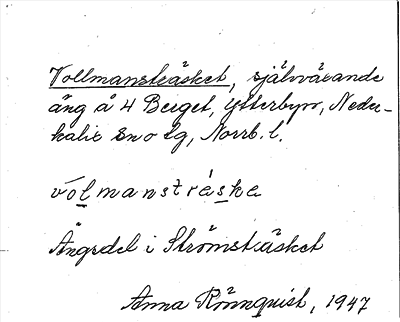 Vollmansträsket, självväxande
äng å 4 Berget, Ytterbyn, Neder-
kalix sn o tg, Norrb. l.
vòlmanstréska
Ängsdel i Strömsträsket
Anna Rönnquist, 1947